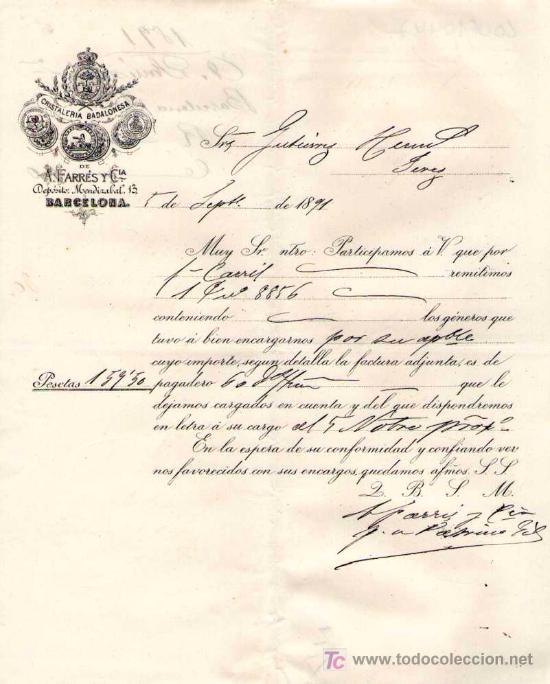 CRISTALERIA BADALONESA
DE
A. FARRÉS Y Cía
Depósito: Mendizabal, 13
BARCELONA.
Sres Gutierrez Hermos
Jerez
5 de Septe. de 1891
Muy Sr. ntro: Participamos á V. que por
f. Carril remitimos
1 8856
conteniendo los géneros que
tuvo á bien encargarnos por su aple
cuyo importe, segun detalla la factura adjunta, es de
Pesetas 159'50 pagadero 60 d/ que le
dejamos cargados en cuenta y del que dispondremos
en letra á su cargo al 5 Novre próxo
En la espera de su conformidad y confiando ver
nos favorecidos con sus encargos, quedamos afmos. S. S.
Q. B. S. M.
A Farrés y Cía
p. a.
TC www.todocoleccion.net